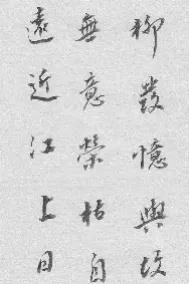 柳發憶與故
無意榮枯自
遠近江上日